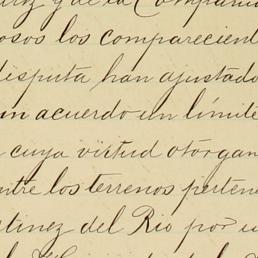 que la Compañía
osos los compareciente
disputa han ajustado
un acuerdo un límite
cuya virtud otorgan
entre los terrenos pertene
tinez del Rio por u